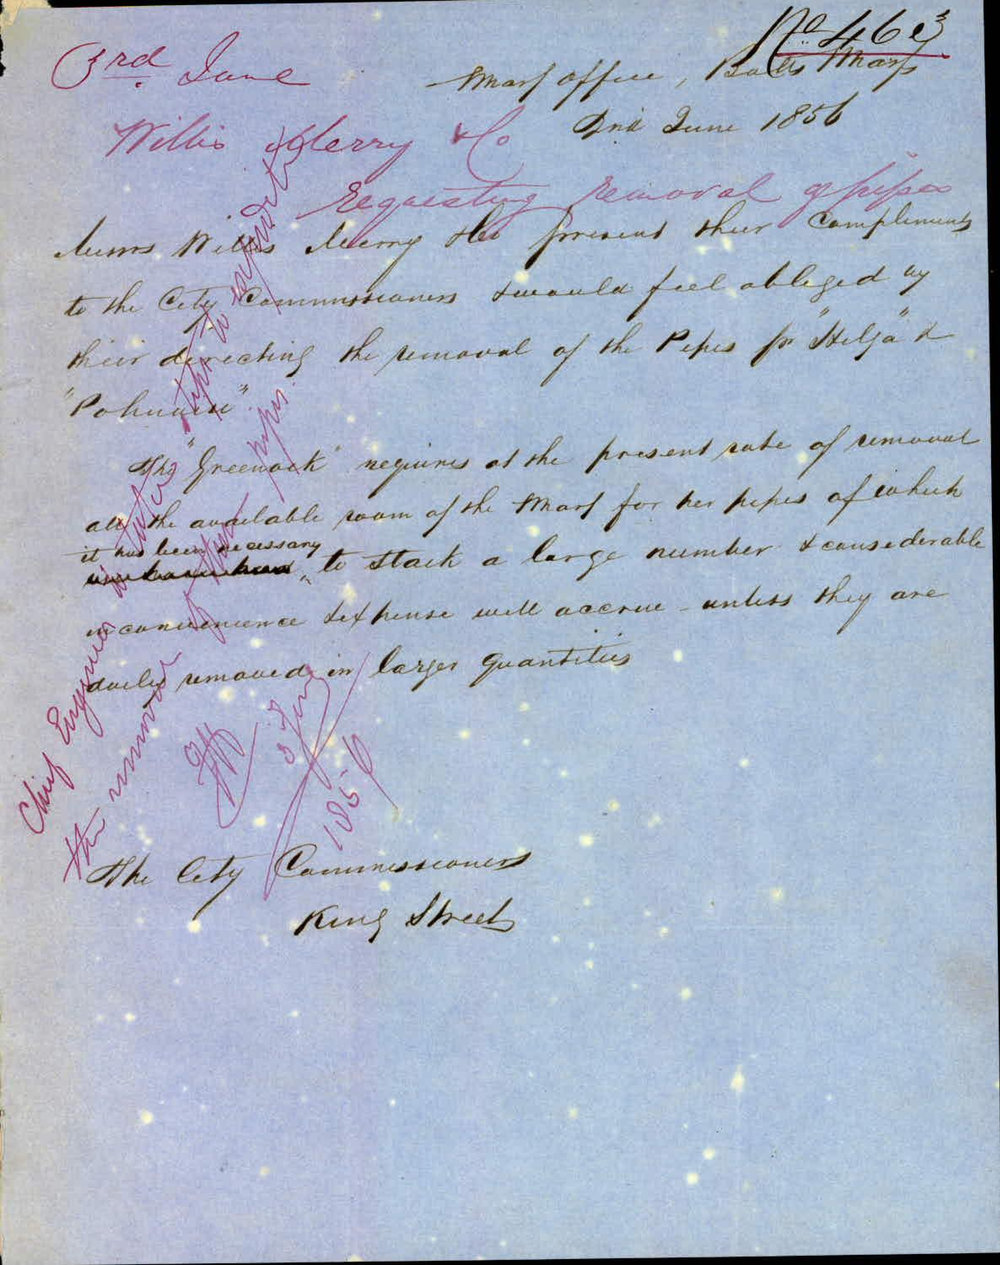 No. 463
3rd June
Wharf office, Botts Wharf
2nd June 1856
Willis Merry & Co
Requesting removal of pipes
Messrs Willis Merry & Co present their Compliments
to the City Commissioners & would feel obliged by
their directing the removal of the Pipes pr "Helga" &
The "Greenock" requires at the present rate of removal
all the available room of the Wharf for her pipes of which
it has been necessary
to stack a large number & considerable
inconvenience & expense will accrue unless they are
daily removed in larger quantities
The City Commissioners
King Street
Chief Engineer to take steps to expedite
the removal of these pipes
3 June
1856